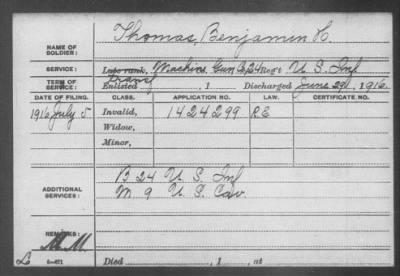 Thomas, Benjamin H.
NAME OF
SOLDIER:
SERVICE: Late rank, Machine Gun Co, 24 Reg't U. S. Inf
TERM OF
SERVICE: Enlisted , 1 Discharged June 29, 1916.
DATE OF FILING. CLASS. APPLICATION NO. LAW. CERTIFICATE NO.
1916 July 5 Invalid, 1424299 RE
Widow,
Minor,
ADDITIONAL
SERVICES:
B 24 U. S. Inf
M 9 U. S. Cav.
REMARKS:
M.M.
Died , 1 , at